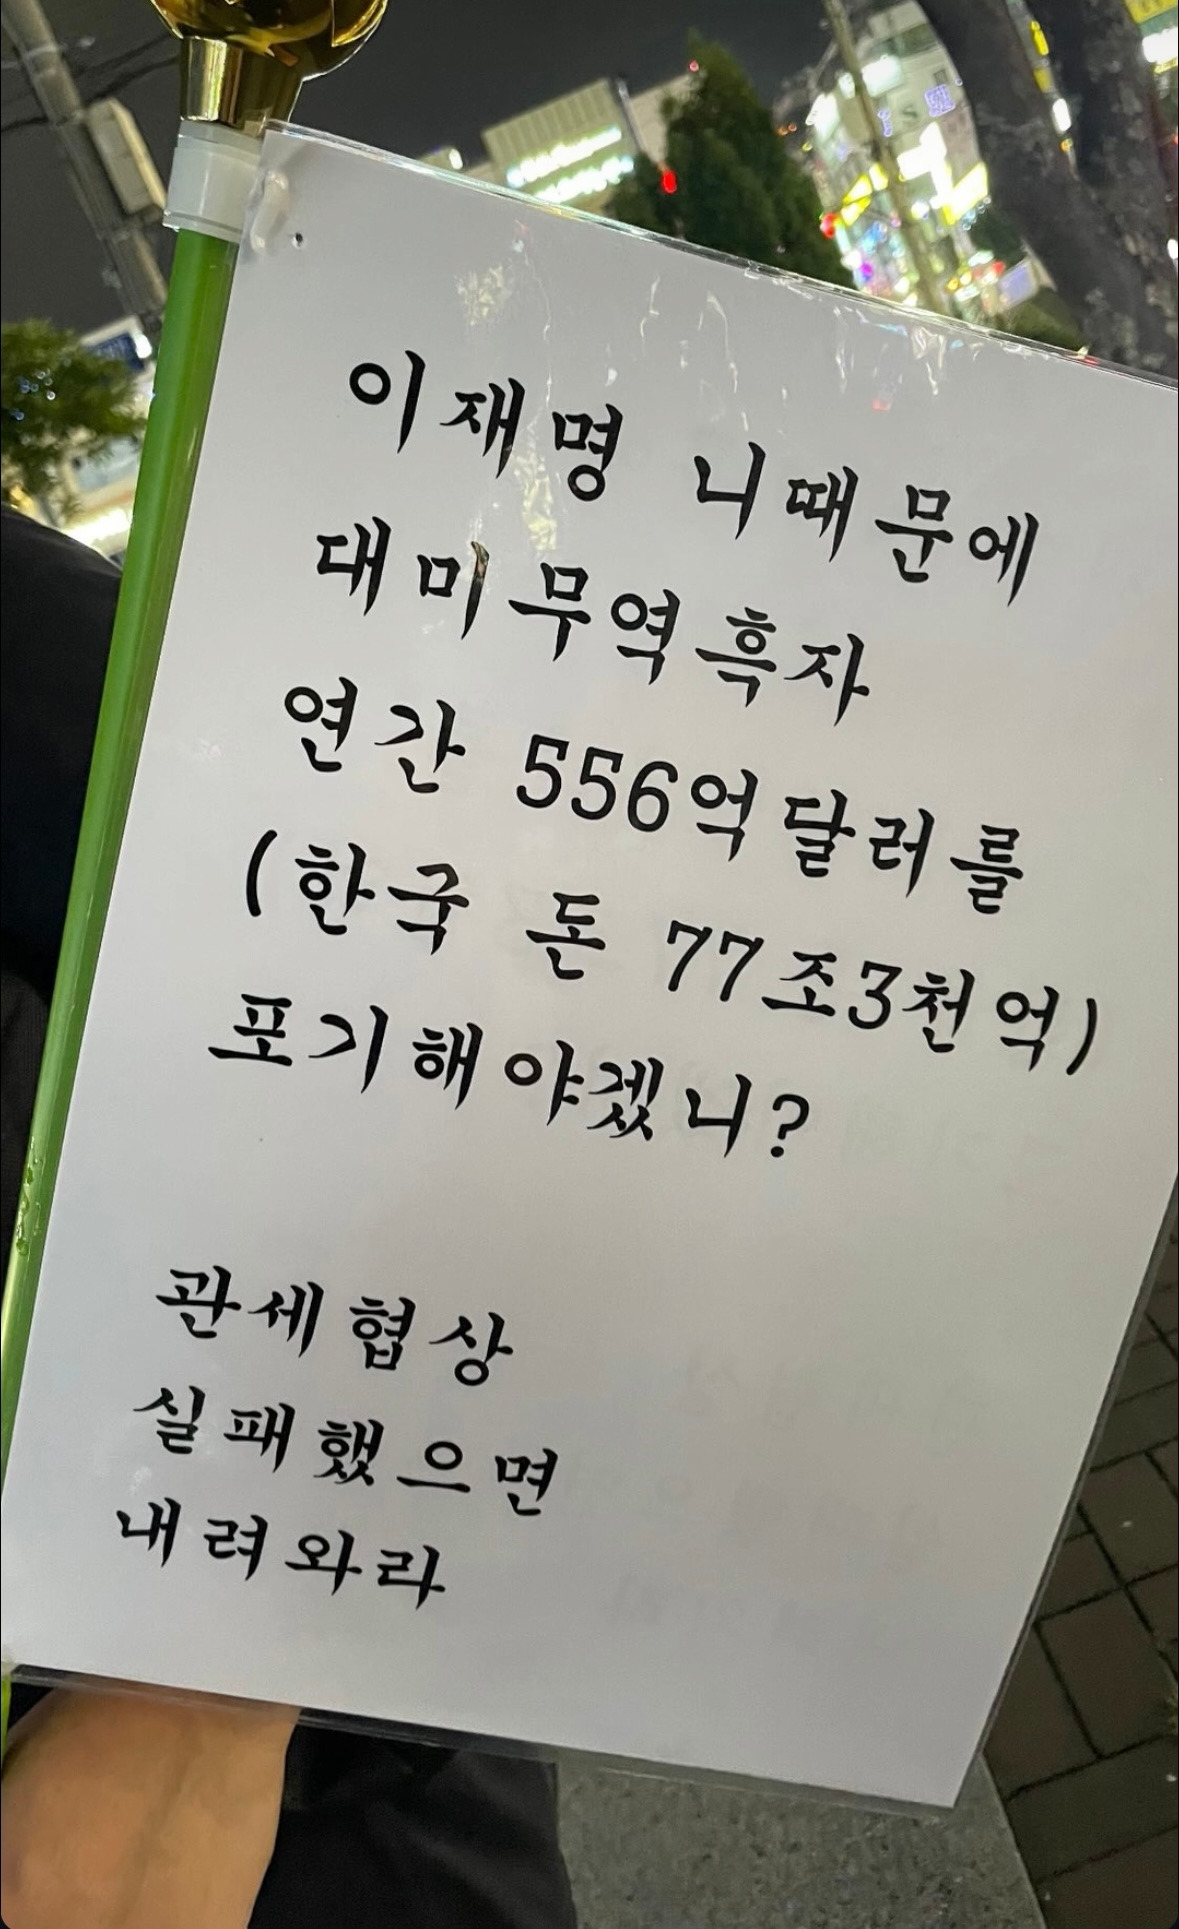 이재명 니때문에
대미무역흑자
연간 556억달러를
(한국 돈 77조3천억)
포기해야겠니?
관세협상
실패했으면
내려와라